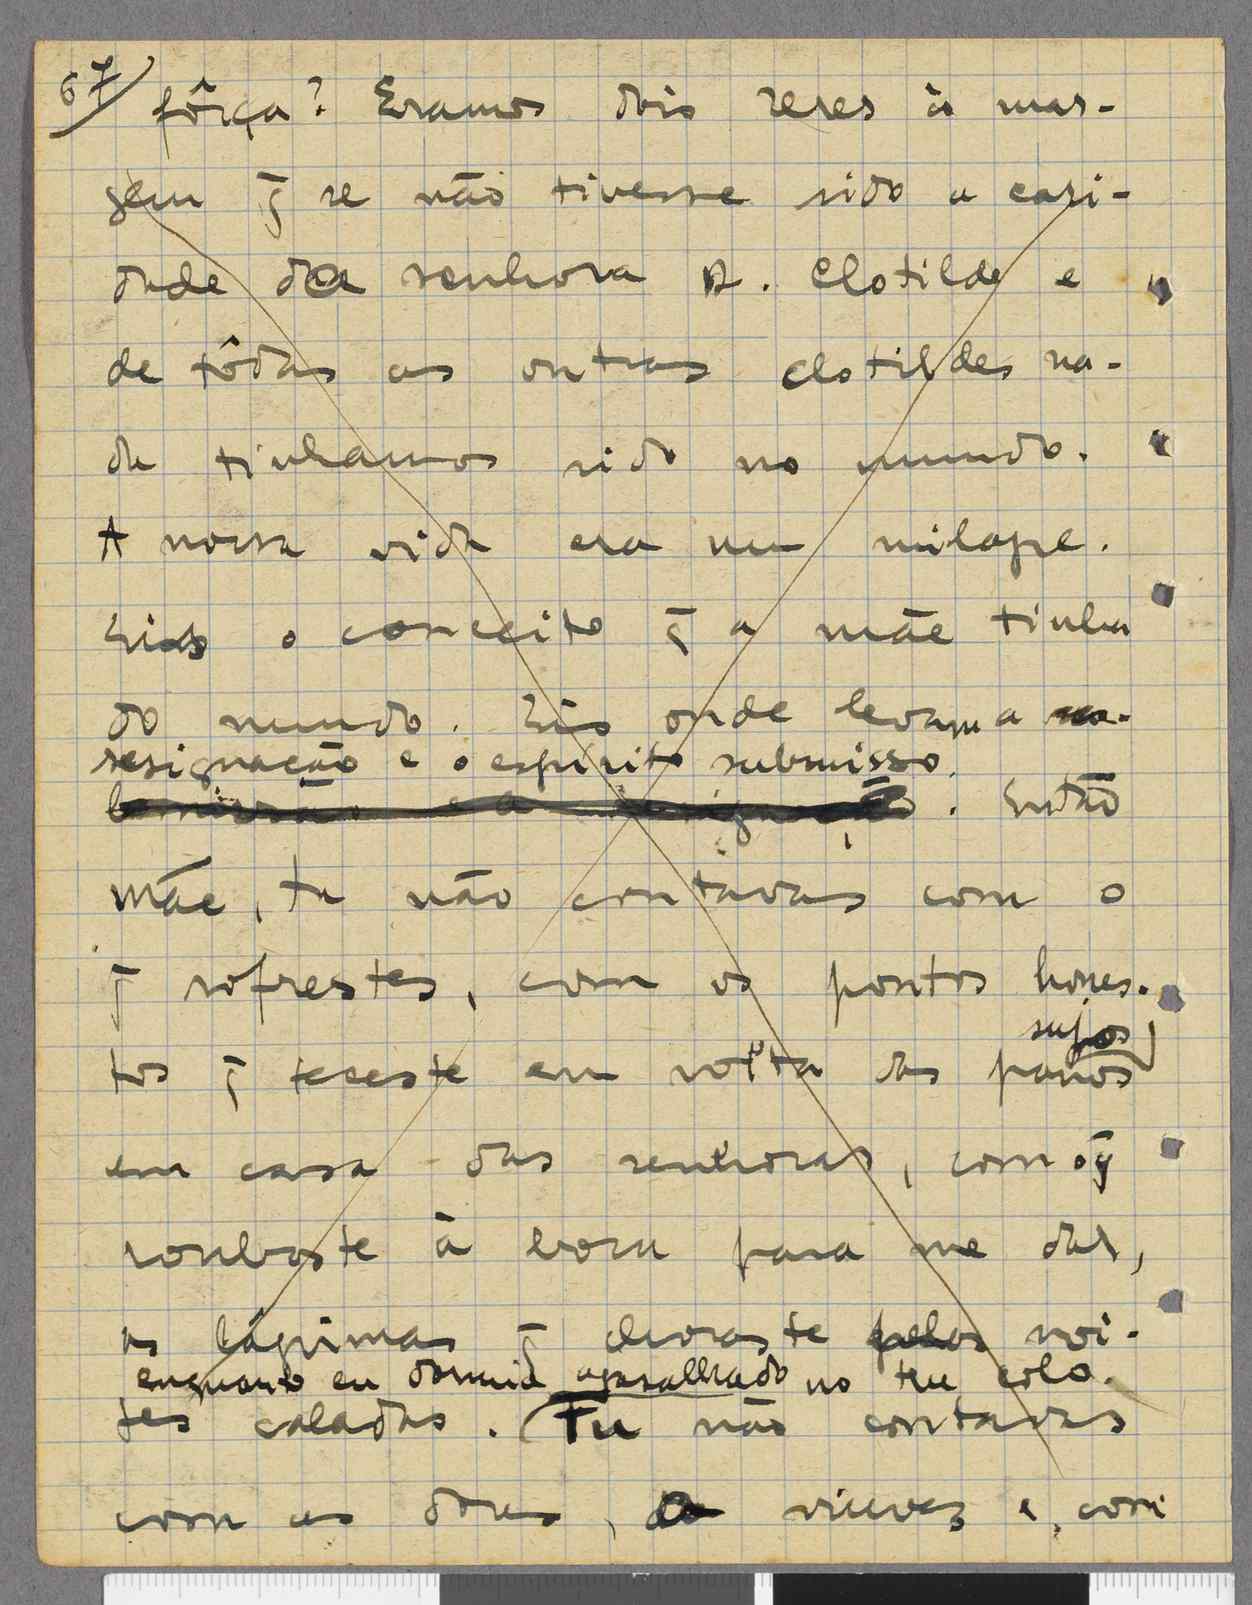 67/ fôrça? Eramos dois seres à mar-
gem q̄ se não tivesse sido a cari-
dade da senhora D. Clotilde e
de tôdas as outras clotildes na-
da tinhamos sido no mundo.
A nossa vida era um milagre.
Eis o conceito q̄ a mãe tinha
do mundo. Eis onde levam a
resignação e o espírito submisso.
. Então
mãe, tu não contavas com o
q̄ sofrestes, com os pontos hones-
sujos
tos q̄ teceste em volta dos panos
em casa das senhoras, com o q̄
roubaste à boca para me dar,
as lágrimas q̄ choraste pelas noi-
enquanto eu dormia agasalhado no teu colo.
tes caladas. Tu não contavas
com as dores, a viuvez e, com